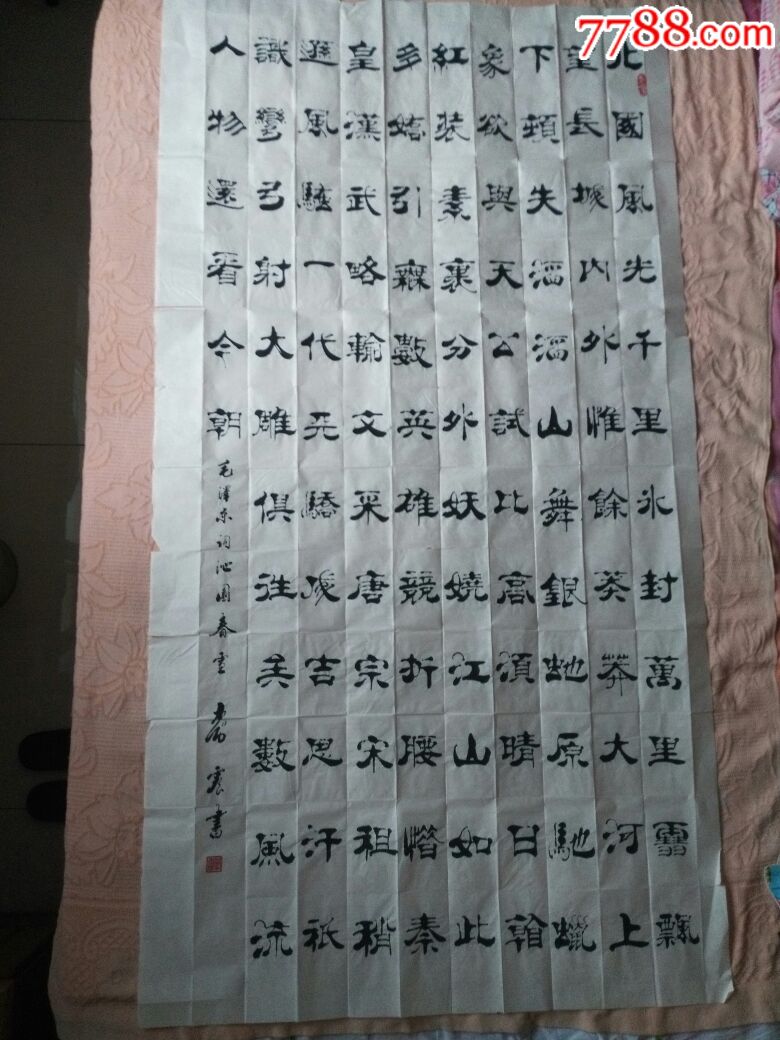 7788.com
北國風光千里冰封萬里雪飄
望長城內外惟餘莽莽大河上
下頓失滔滔山舞銀蛇原馳蠟
象欲與天公試比高須晴日看
紅裝素裹分外妖嬈江山如此
多嬌引無數英雄競折腰惜秦
皇漢武略輸文采唐宗宋祖稍
遜風騷一代天驕成吉思汗祇
識彎弓射大雕俱往矣數風流
人物還看今朝
毛澤东词沁園春雪 震書